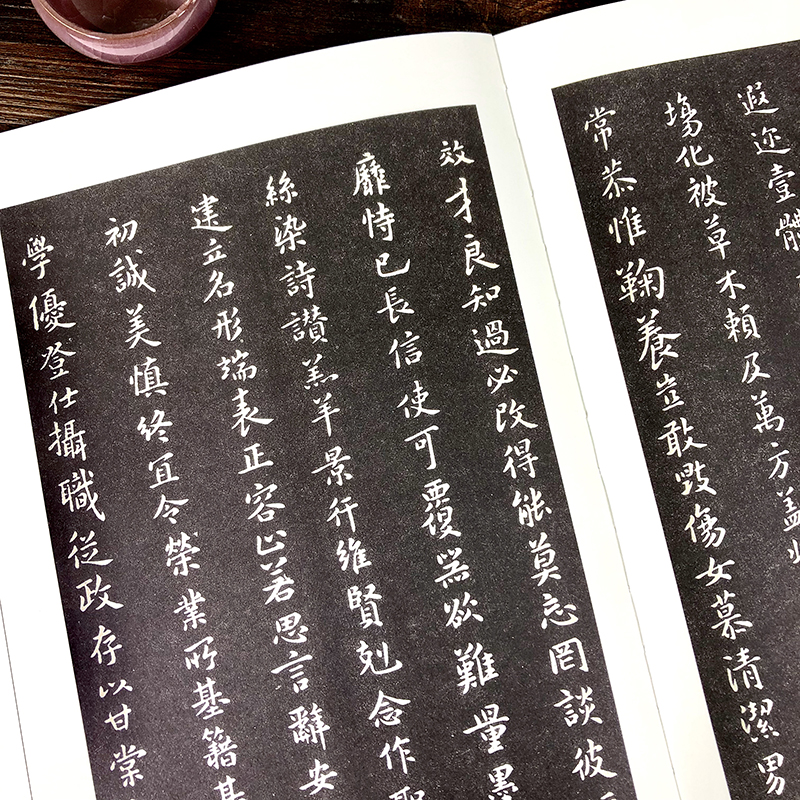 遐迩壹體
塲化被草木頼及萬方盖此
常恭惟鞠養豈敢毀傷女慕清潔男
效才良知過必改得能莫忘罔談彼
靡恃已長信使可覆器欲難量墨
絲染詩讃羔羊景行維賢剋念作聖
建立名形端表正容止若思言辭安
初誠美慎終宜令榮業所基籍甚
學優登仕攝職従政存以甘棠